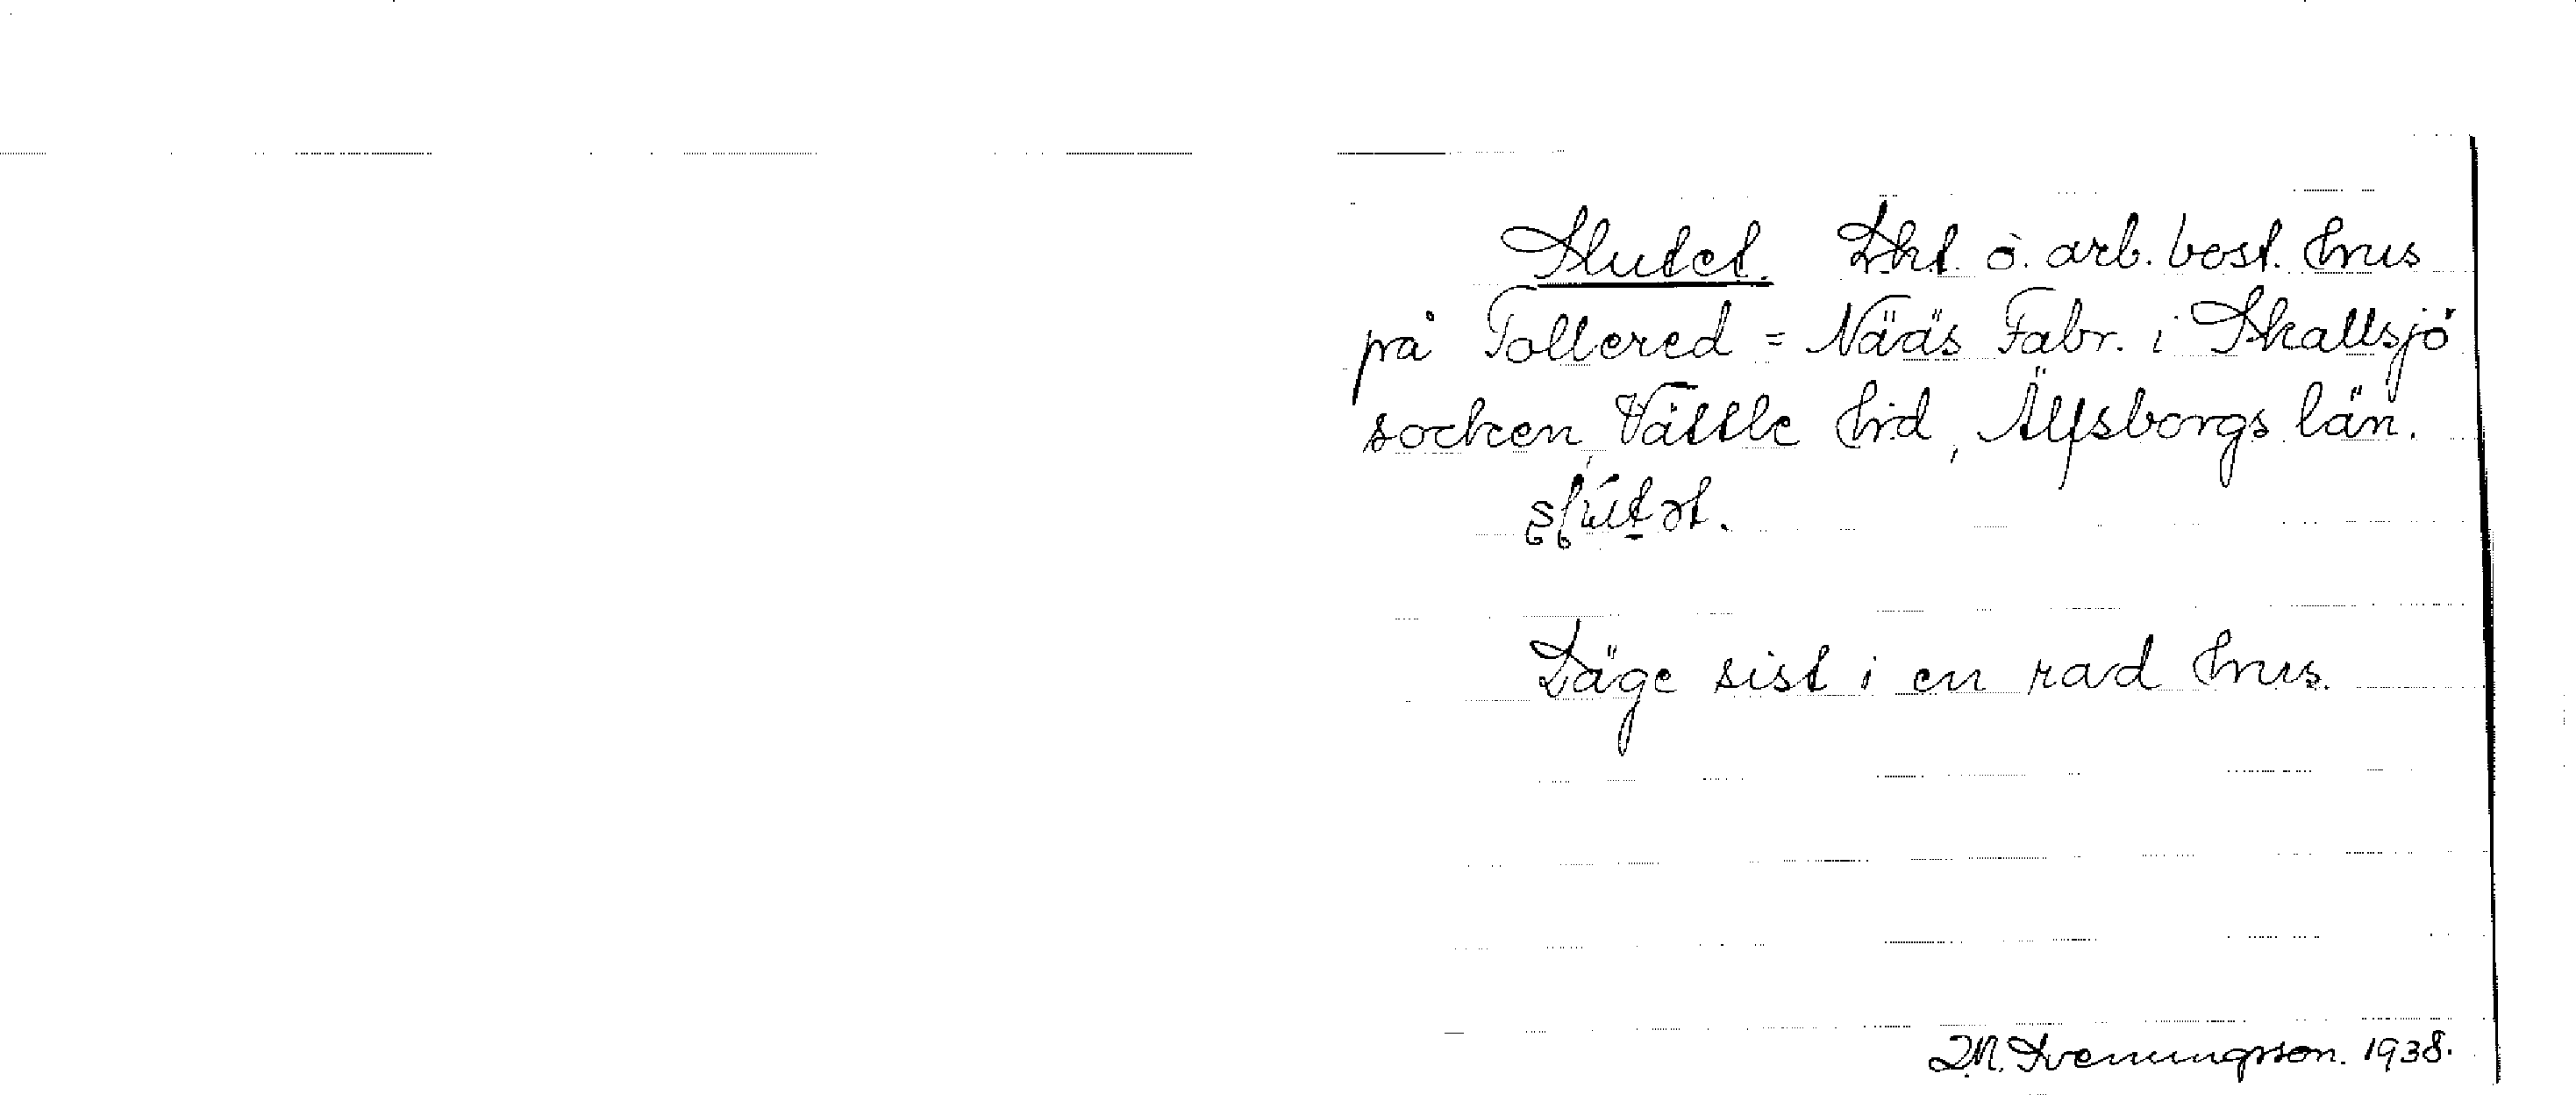 Slutet. Lht. o. arb. bost. hus
på Tollered = Nääs Fabr. i Skallsjö
socken, Vättle hrd, Älfsborgs län.
slutət.
Läge sist i en rad hus.
D.N. Svenningsson. 1938.